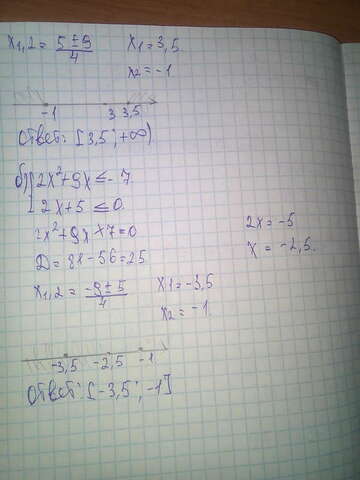 x₁,₂ = (5 ± 9)/4    x₁ = 3,5
x₂ = -1
-1    3    3,5
Ответ: [3,5; +∞)
б) { 2x² + 9x ≤ -7
2x + 5 ≤ 0.
2x² + 9x + 7 = 0    2x = -5
D = 81 - 56 = 25    x = -2,5.
x₁,₂ = (-9 ± 5)/4    x₁ = -3,5
x₂ = -1.
-3,5    -2,5    -1
Ответ: [-3,5; -1]